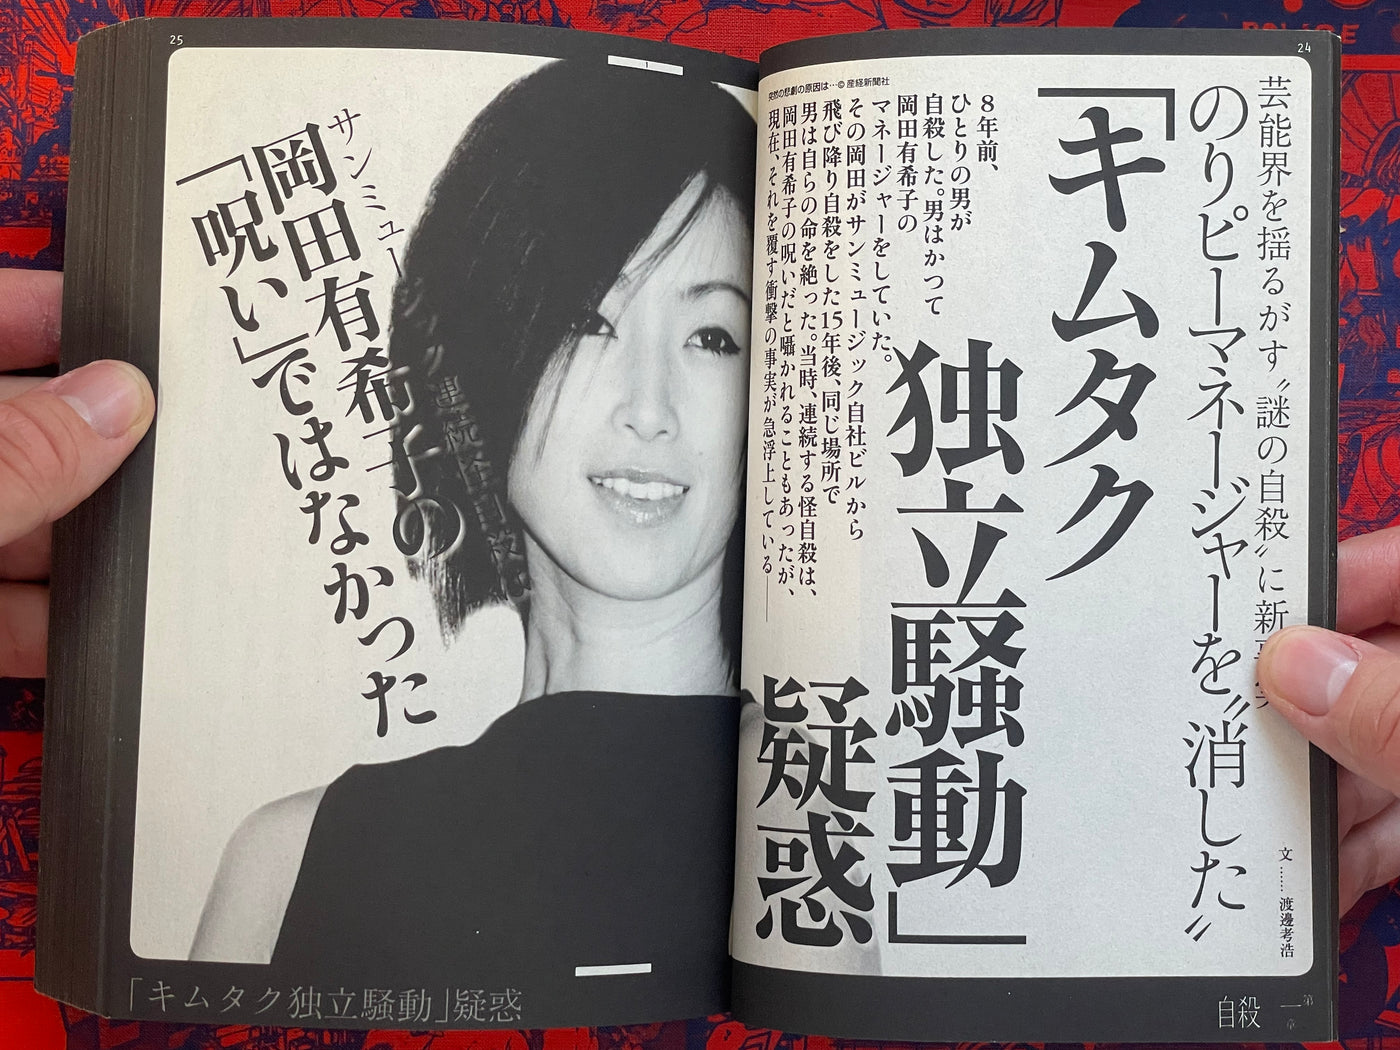 24
芸能界を揺るがす〝謎の自殺〟に新
のりピーマネージャーを〝消した〟
「キムタク
独立騒動」
疑惑
文……渡邊考浩
8年前、
ひとりの男が
自殺した。男はかつて
岡田有希子の
マネージャーをしていた。
その岡田がサンミュージック自社ビルから
飛び降り自殺をした15年後、同じ場所で
男は自らの命を絶った。当時、連続する怪自殺は、
岡田有希子の呪いだと囁かれることもあったが、
現在、それを覆す衝撃の事実が急浮上している——
突然の悲劇の原因は…© 産経新聞社
第一章
自殺
25
1
サンミュージック連続怪自殺は
岡田有希子の
「呪い」ではなかった
「キムタク独立騒動」疑惑